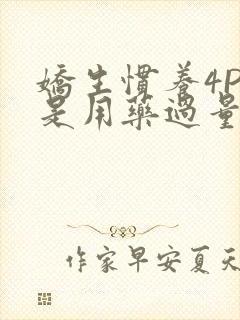 嬌生慣養4P
是用藥過量
作家早安夏天